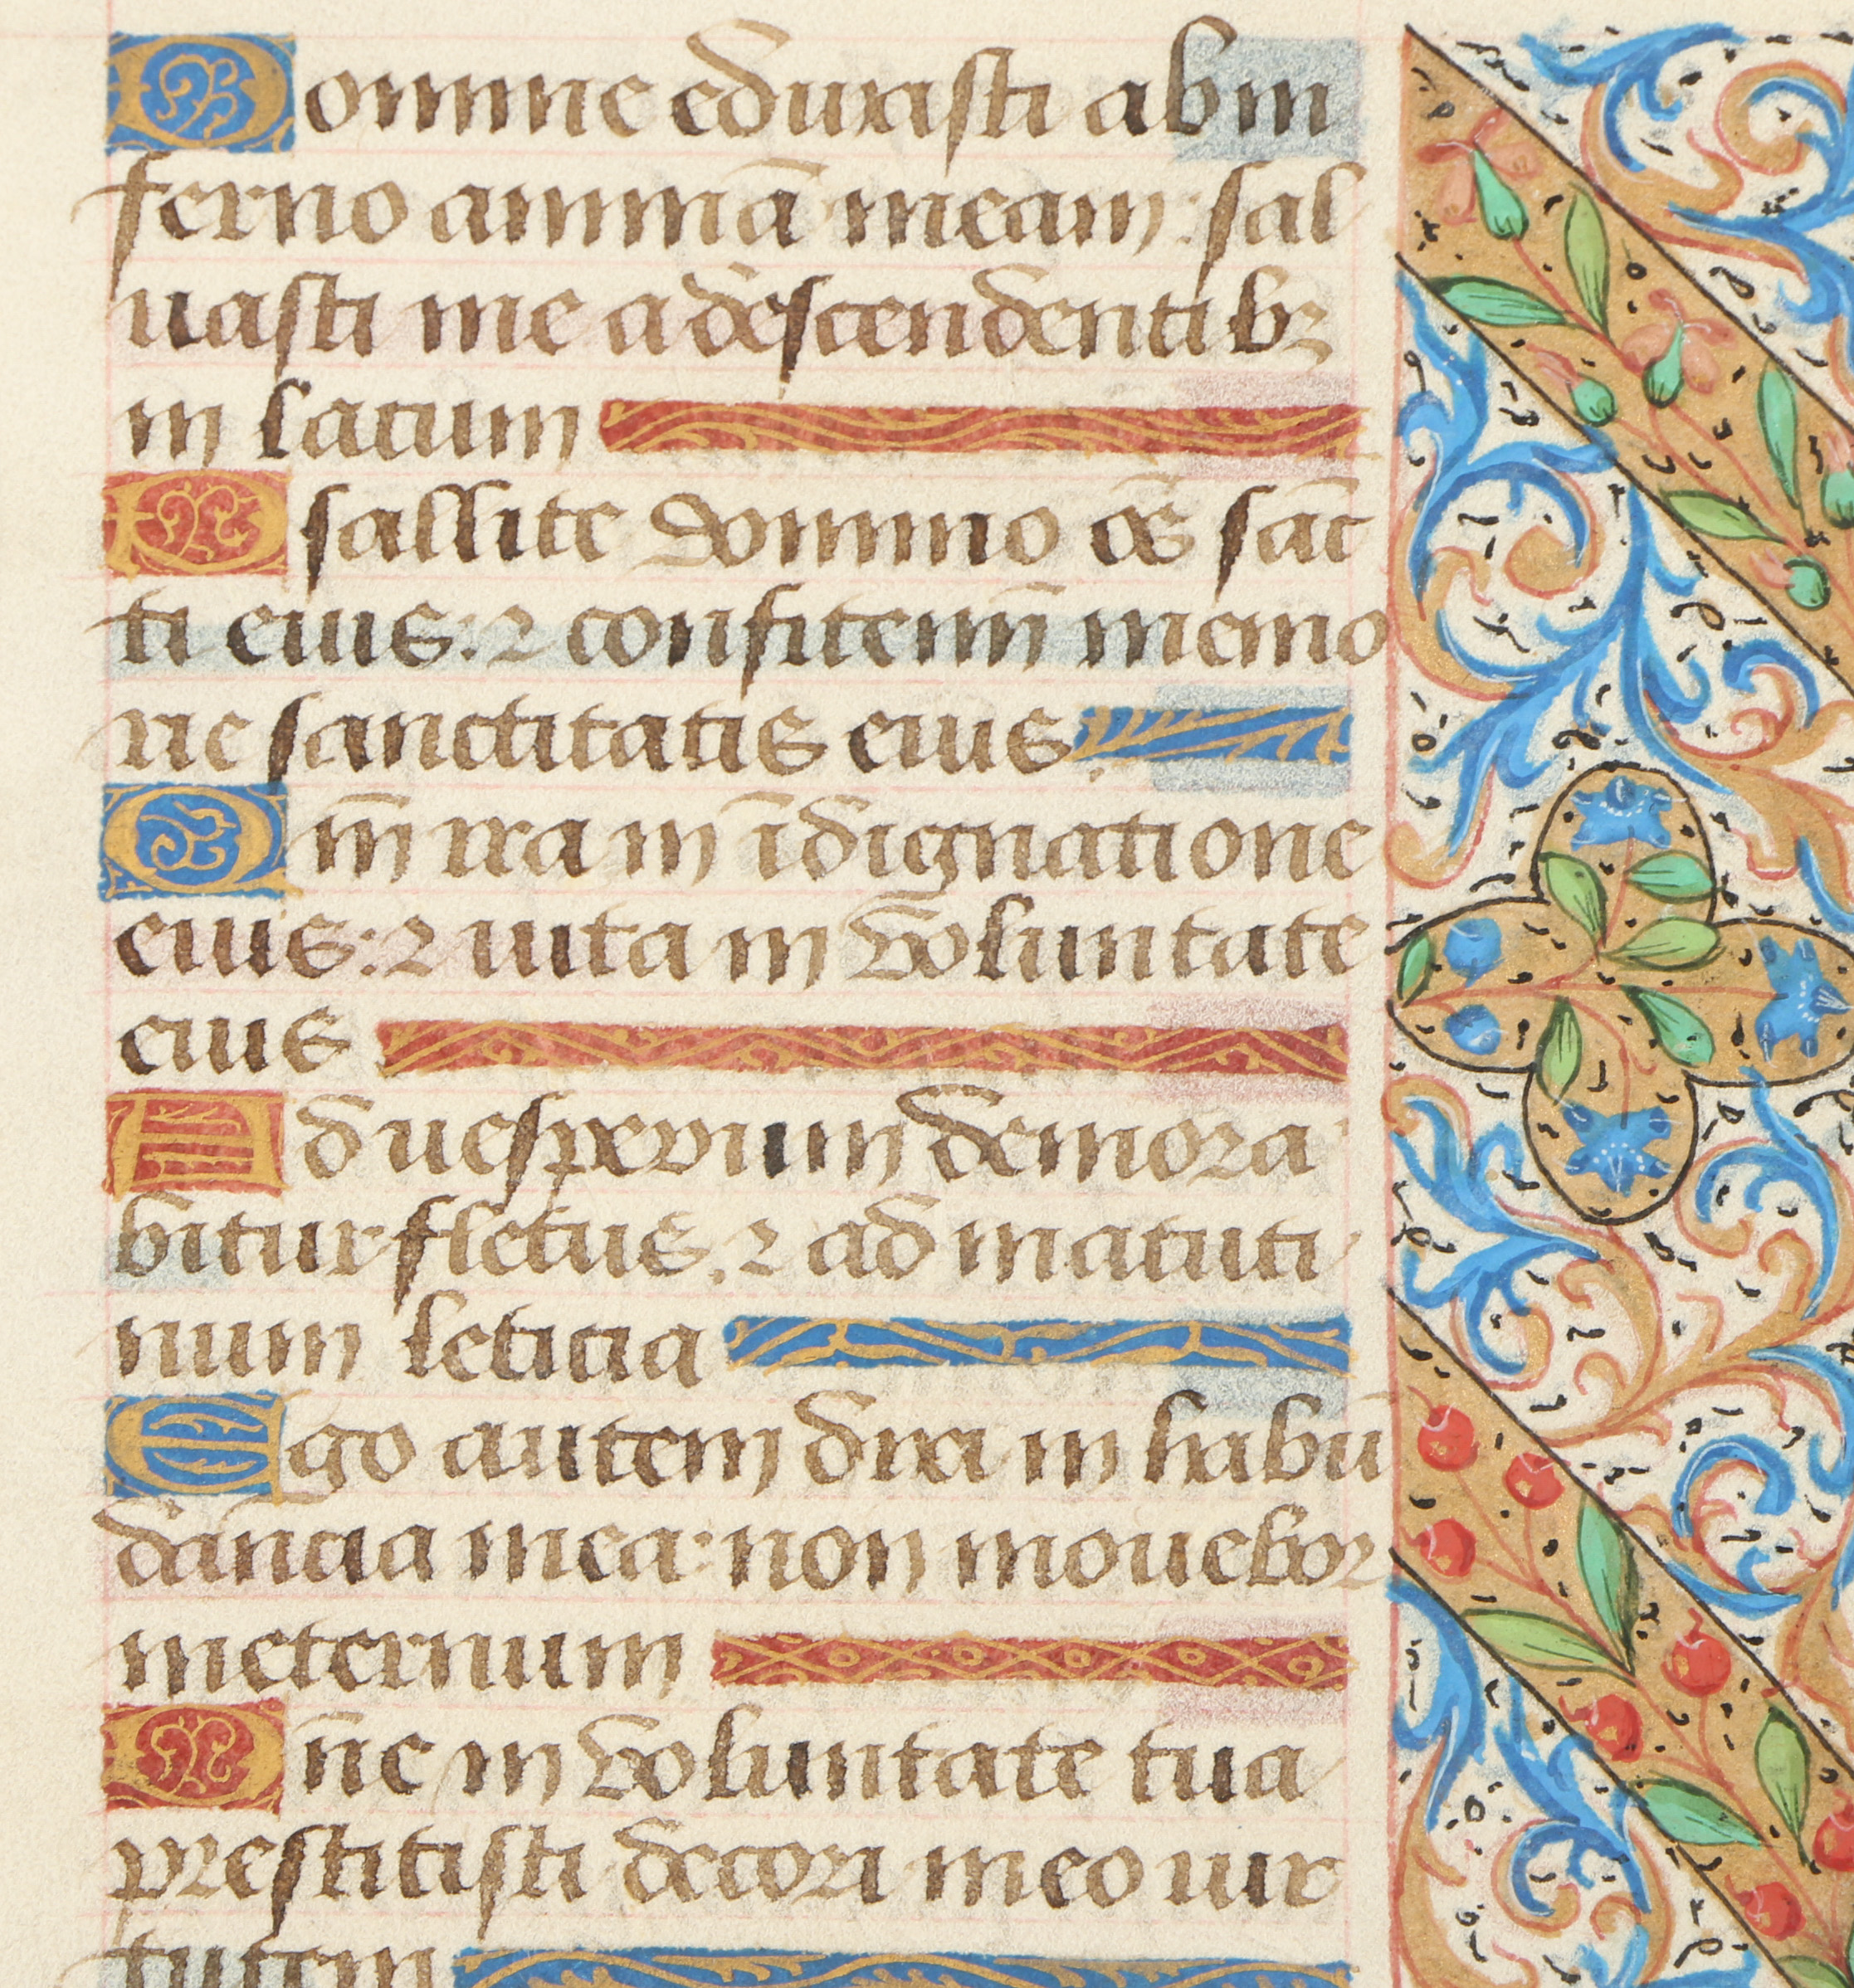 Domine eduxisti ab in
ferno animā meam: sal
uasti me a descendentibꝫ
in lacum
Psallite domino oēs sāc
ti eius: ⁊ confitemī memo
rie sanctitatis eius.
Qm̄ ira in īdignatione
eius: ⁊ uita in voluntate
eius
Ad uesperum demora
bitur fletus. ⁊ ad matuti
num leticia
Ego autem dixi in habū
dancia mea: non mouebor
ineternum
Dn̄e in voluntate tua
prestitisti decori meo uir
tutem